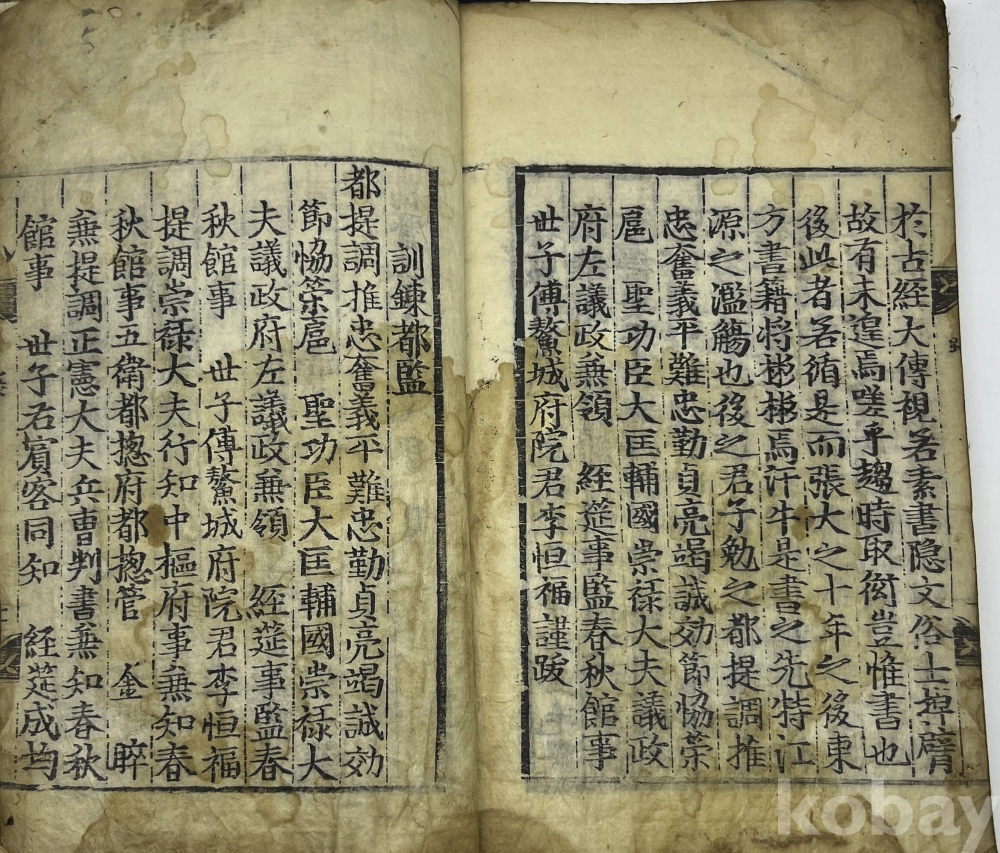 於古経大傳視若素書隐文俗士掉臂
故有未遑焉嗟乎趨時取衒豈惟書也
後此者若循是而張大之十年之後東
方書籍将彬彬焉汗牛是書之先特江
源之濫觴也後之君子勉之都提調推
忠奮義平難忠勤貞亮竭誠効節恊策
扈　聖功臣大匡輔國崇祿大夫議政
府左議政兼領　経筵事監春秋館事
世子傅鰲城府院君李恒福謹跋
訓鍊都監
都提調推忠奮義平難忠勤貞亮竭誠効
節恊策扈　聖功臣大匡輔國崇祿大
夫議政府左議政兼領　経筵事監春
秋館事　世子傅鰲城府院君李恒福
提調崇祿大夫行知中樞府事兼知春
秋館事五衛都揔府都揔管　金　睟
兼提調正憲大夫兵曹判書兼知春秋
館事　世子右賓客同知　経筵成均
kobay